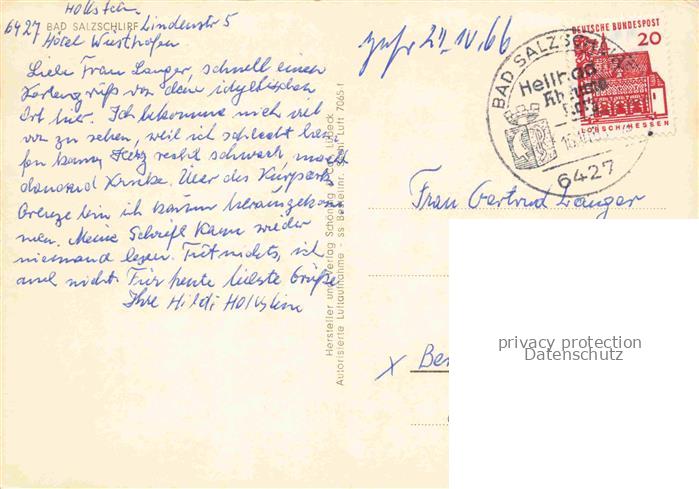 Holkstein
6427 BAD SALZSCHLIRF Lindenstr 5
Hotel Westhofen
Liebe Frau Langer, schnell einen
Kartengruß von dem idyllischen
Ort hier. Ich bekomme nich viel
von zu sehen, weil ich schlecht lau
fen kann, Herz recht schwach, mach
dauernd Knixe. Über des Kurpark
Grenze bin ich kaum herausgekom
men. Meine Schrift kann wieder
niemand lesen. Tut nichts, ich
auch nicht. Für heute liebste Grüße
Ihre Hildi Holkstein
Hersteller und Verlag Schöning & Co., Lübeck
Autorisierte Luftaufnahme - ss Bestellnr. Luft 7065-f
24. IV. 66
BAD SALZSCHLIRF
Heilbad
Rheuma
6427
DEUTSCHE BUNDESPOST
20
LORSCH/HESSEN
Frau Gertrud Langer
x Ber
privacy protection
Datenschutz